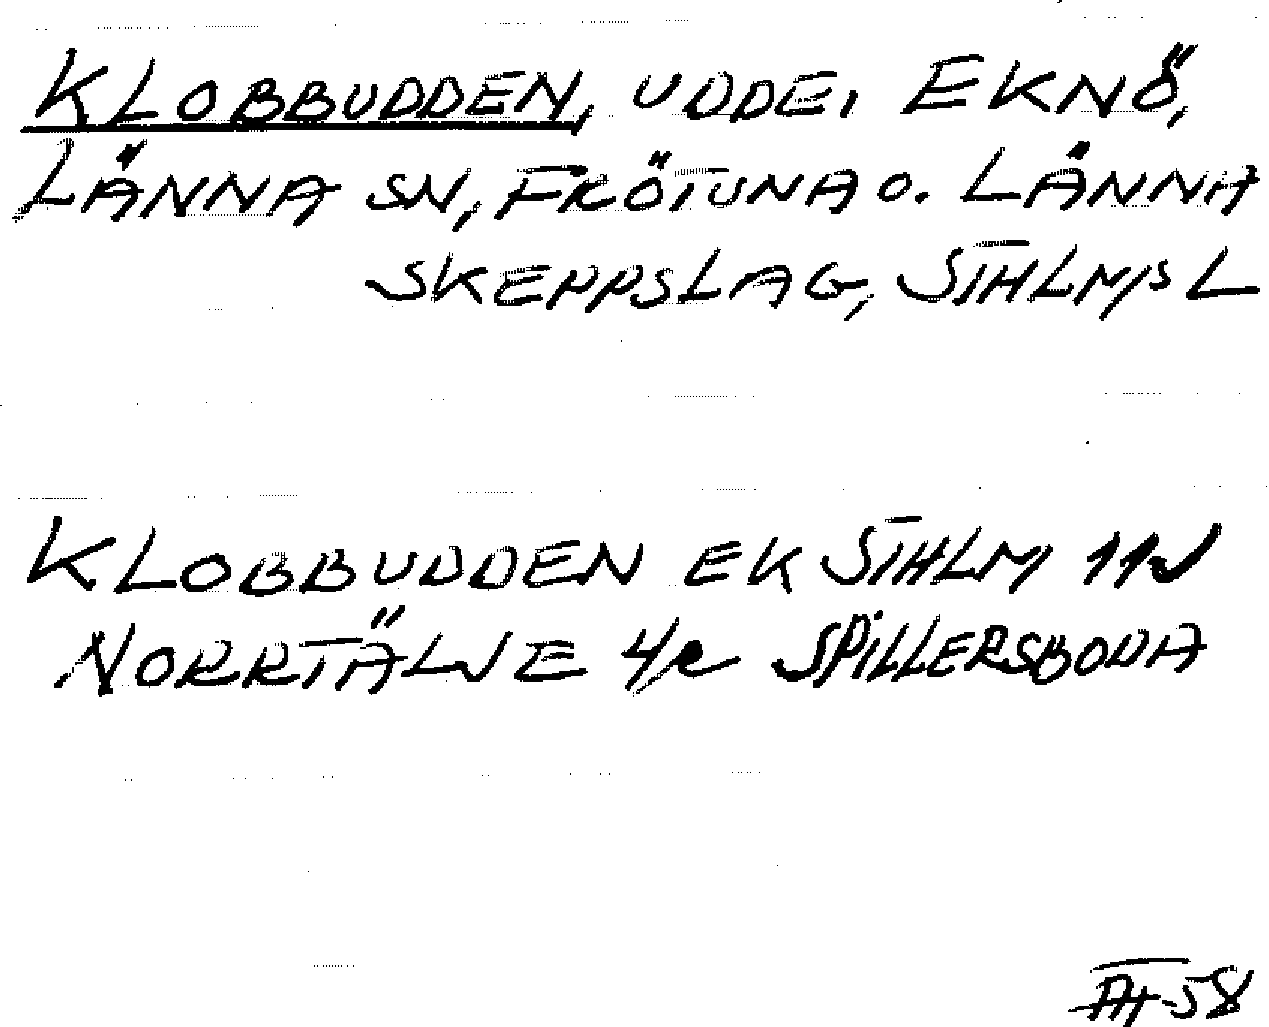 KLOBBUDDEN, UDDE, EKNÖ,
LÄNNA SN, FRÖTUNA O. LÄNNA
SKEPPSLAG, STHLM/S L
KLOBBUDDEN EK STHLM 11N
NORRTÄLJE 4/e SPILLERSBODA
58